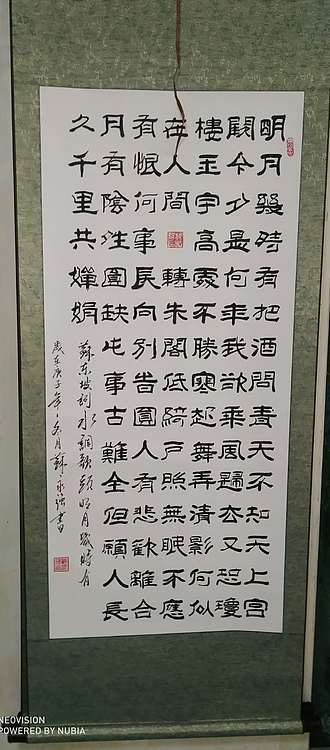 明月幾時有把酒問青天不知天上宮
闕今夕是何年我欲乘風歸去又恐瓊
樓玉宇高處不勝寒起舞弄清影何似
在人間 轉朱閣低綺戶照無眠不應
有恨何事長向別旹圓人有悲歡離合
月有陰晴圓缺此事古難全但願人長
久千里共嬋娟
蘇東坡詞水調歌頭明月幾時有
歲在庚子年冬月蘇永強書
NEOVISION
POWERED BY NUBIA